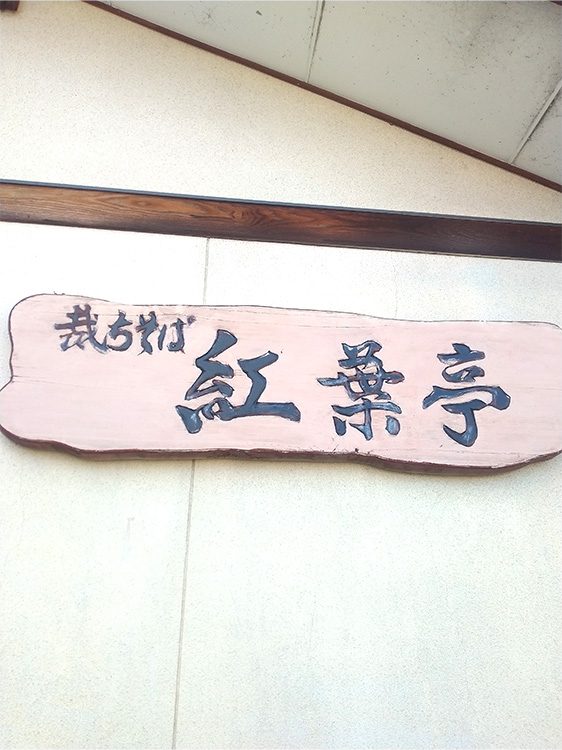 裁ちそば
紅葉亭